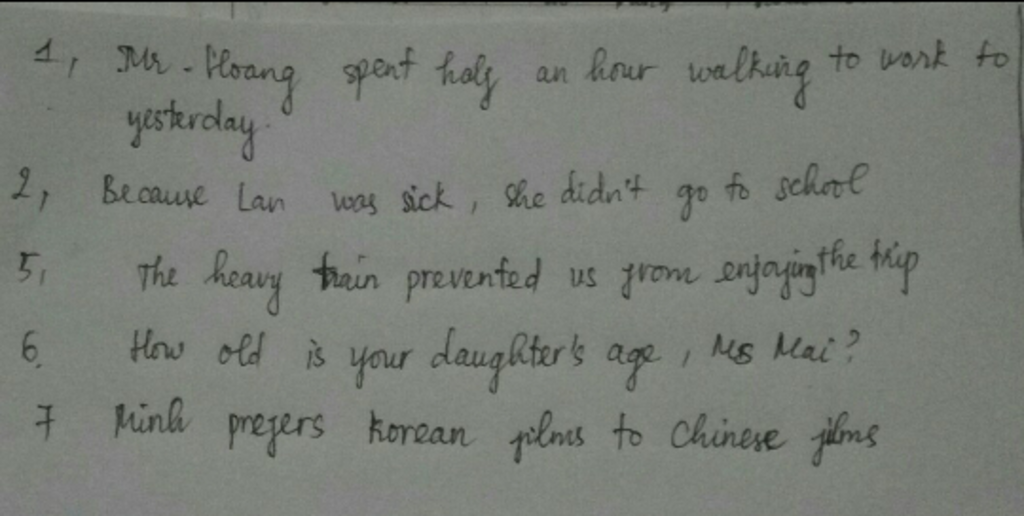 1, Mr - Hoang spent half an hour walking to work to
yesterday.
2, Because Lan was sick, she didn't go to school
5, The heavy train prevented us from enjoying the trip
6. How old is your daughter's age, Ms Mai?
7 Minh prefers Korean films to Chinese films